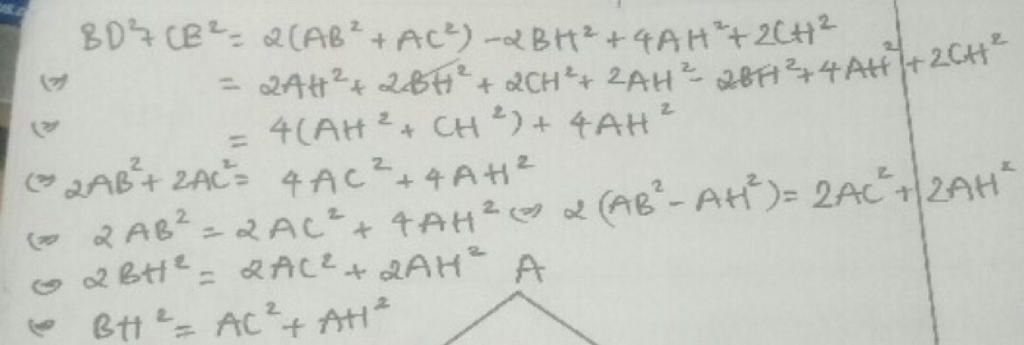 BD²+ CB² = 2(AB² + AC²) - 2BH² + 4AH² + 2CH²
⇔ = 2AH² + 2BH² + 2CH² + 2AH² - 2BH² + 4AH² + 2CH²
⇔ = 4(AH² + CH²) + 4AH²
⇔ 2AB² + 2AC² = 4AC² + 4AH²
⇔ 2AB² = 2AC² + 4AH² ⇔ 2(AB² - AH²) = 2AC² + 2AH²
⇔ 2BH² = 2AC² + 2AH²
A
⇔ BH² = AC² + AH²